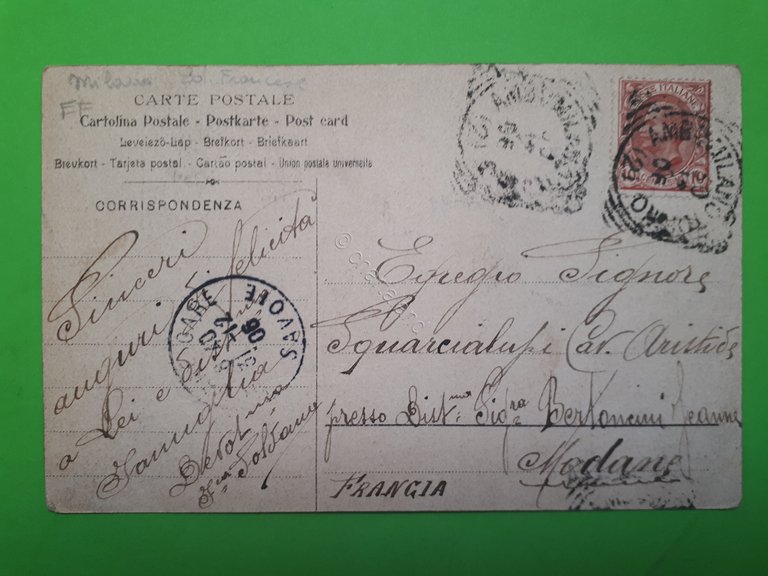 Milano
CARTE POSTALE
Cartolina Postale - Postkarte - Post card
Levelező-Lap - Brefkort - Briefkaart
Brevkort - Tarjeta postal - Cartão postal - Union postale universelle
CORRISPONDENZA
FF
Sinceri
auguri di felicità
a Lei e
famiglia
Dev.ma
Soldano
SAVOIE
POSTE ITALIANE
MILANO
Egregio Signore
Squarcialupi Cav. Aristide
presso Dist.ma Sig.ra Bertoncini Jeanne
Modane
FRANGIA